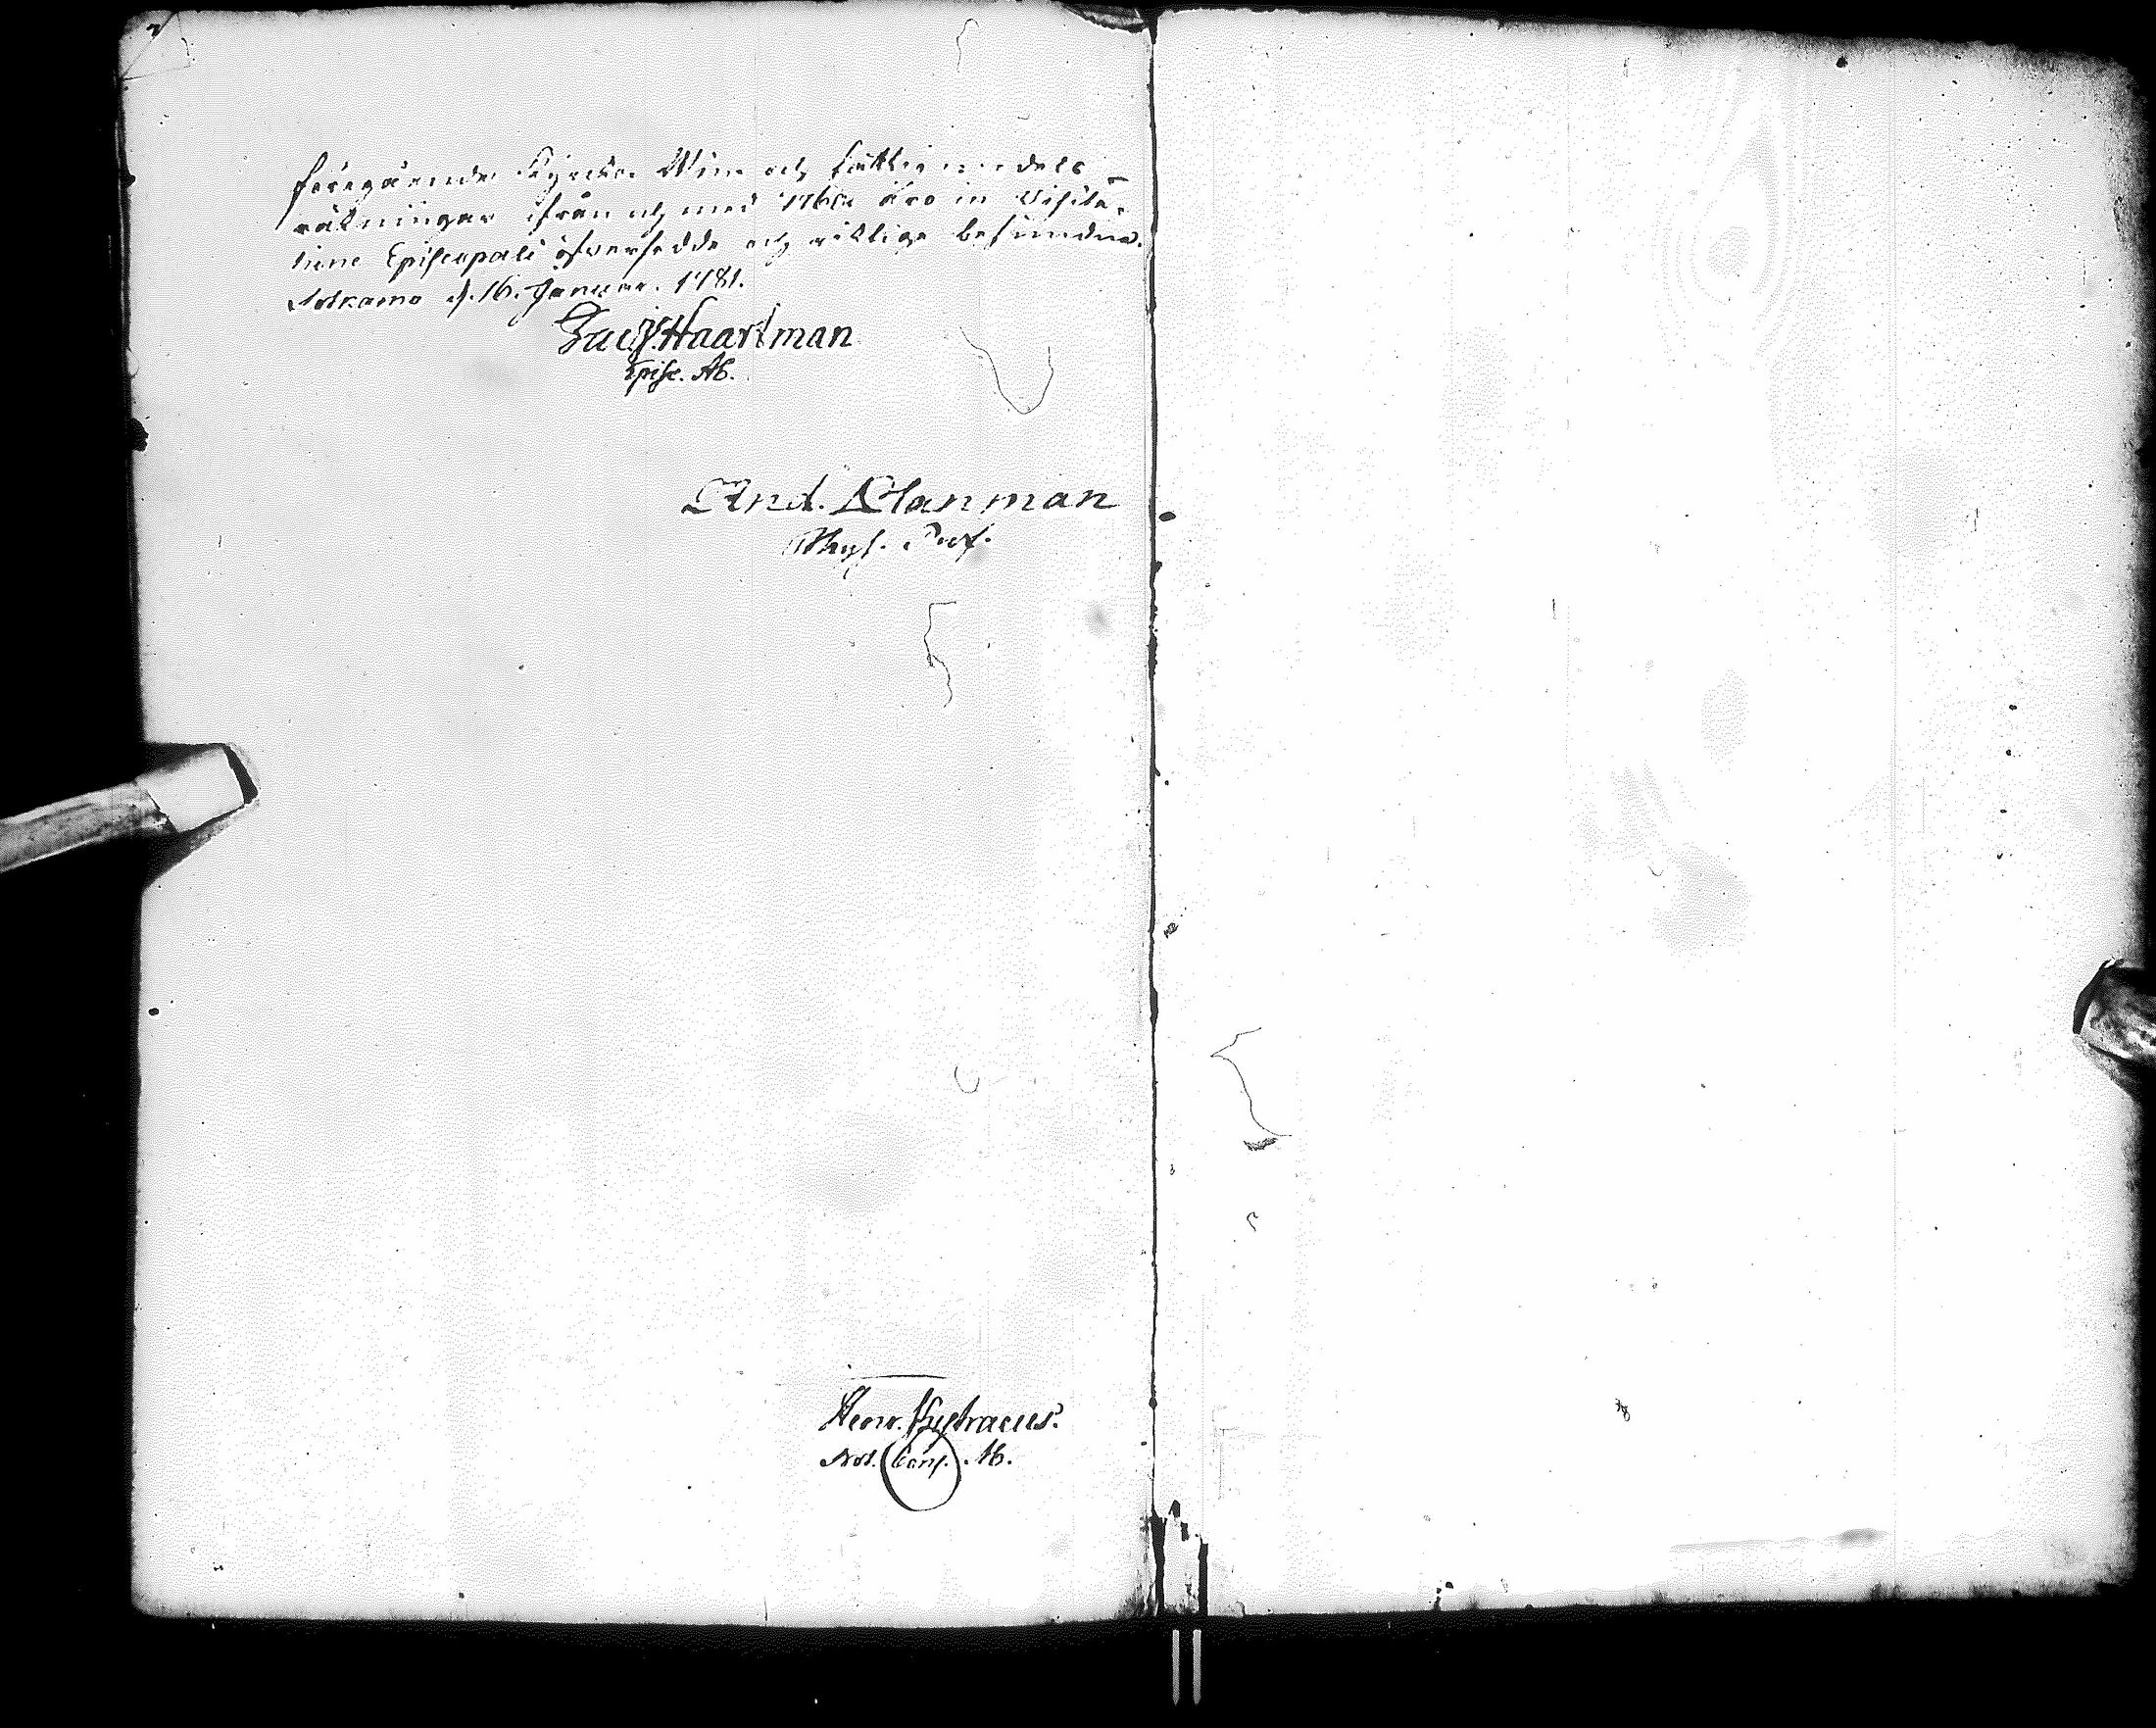 föregående Kyrcko Win- och fattig medels
räkningar ifrån och med 1760 äro in Visita-
tione Episcopali öfversedde och riktige befundne.
Sotkamo d. 16. Januar. 1781.
Haartman
Episc. Ab.
And. Planman
Phys. Prof.
Henr.
Not. Cons. Ab.